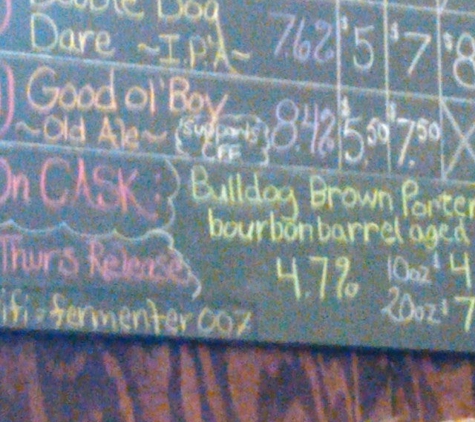 Double Dog
Dare ~I.P.A~ 7.62% $5 $7 $8
Good ol' Boy
~Old Ale~ (supports FF) 8.42% $5.50 $7.50 X
On CASK: Bulldog Brown Porter
bourbon barrel aged
Thurs Release 4.7% 10oz $4
20oz $7
ifi = fermenter007